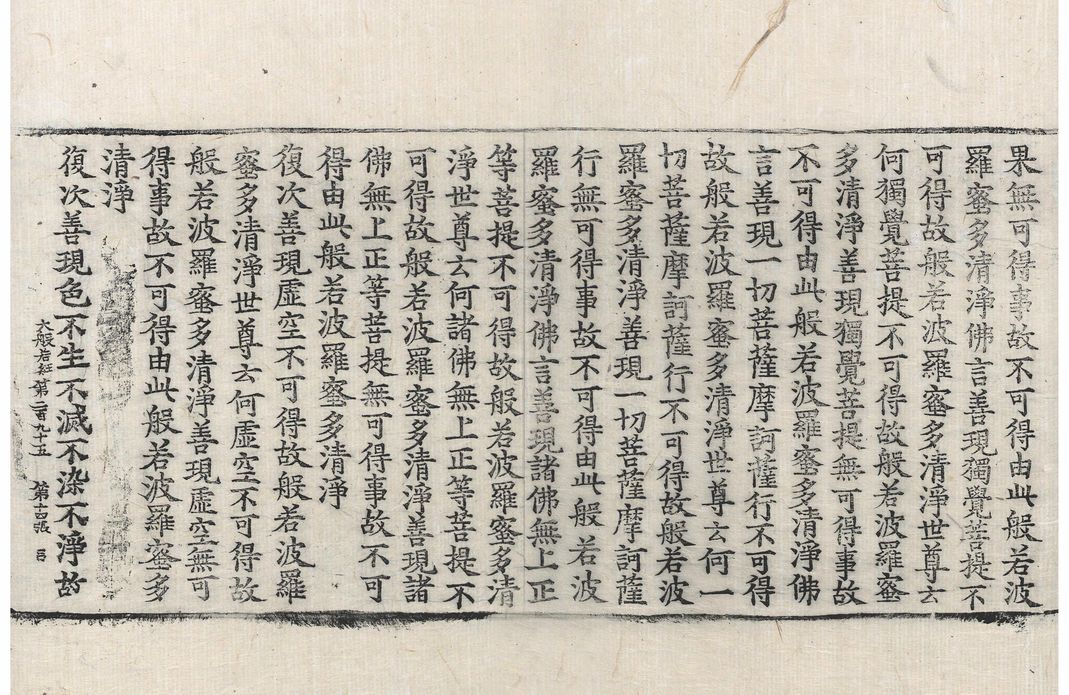 果無可得事故不可得由此般若波
羅蜜多清淨佛言善現獨覺菩提不
可得故般若波羅蜜多清淨世尊云
何獨覺菩提不可得故般若波羅蜜
多清淨善現獨覺菩提無可得事故
不可得由此般若波羅蜜多清淨佛
言善現一切菩薩摩訶薩行不可得
故般若波羅蜜多清淨世尊云何一
切菩薩摩訶薩行不可得故般若波
羅蜜多清淨善現一切菩薩摩訶薩
行無可得事故不可得由此般若波
羅蜜多清淨佛言善現諸佛無上正
等菩提不可得故般若波羅蜜多清
淨世尊云何諸佛無上正等菩提不
可得故般若波羅蜜多清淨善現諸
佛無上正等菩提無可得事故不可
得由此般若波羅蜜多清淨
復次善現虛空不可得故般若波羅
蜜多清淨世尊云何虛空不可得故
般若波羅蜜多清淨善現虛空無可
得事故不可得由此般若波羅蜜多
清淨
復次善現色不生不滅不染不淨故
大般若経第二百九十五 第十四張 呂